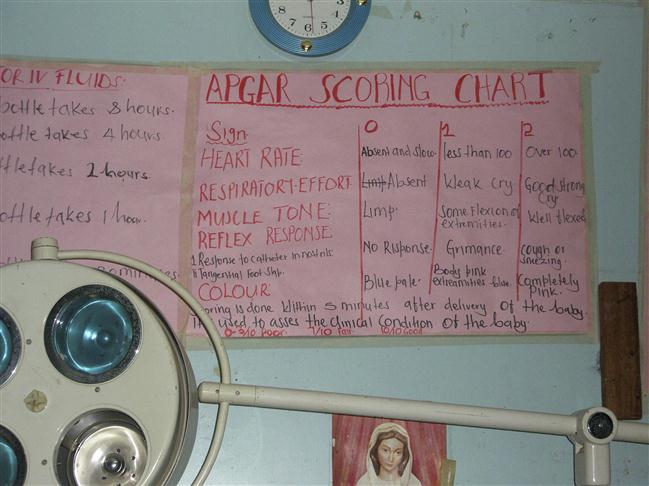 OR IV FLUIDS.
bottle takes 8 hours.
ottle takes 4 hours.
ttle takes 2 hours.
ottle takes 1 hour.
APGAR SCORING CHART
Sign 0 1 2
HEART RATE: Absent and Slow. less than 100 Over 100
RESPIRATORY EFFORT Limp Absent Weak Cry Good strong cry
MUSCLE TONE: Limp. Some flexion of extremities. Well flexed
REFLEX RESPONSE:
1 Response to Catheter in nostrils No Risponse. Grimance. Cough or sneezing.
ii Tangential foot slap.
COLOUR Blue pale. Body pink extremities blue. Completely pink.
oring is done Within 5 minutes after delivery of the baby
It is used to asses the clinical Condition of the baby.
0-3/10 Poor. 7/10 Fair. 10/10 Good